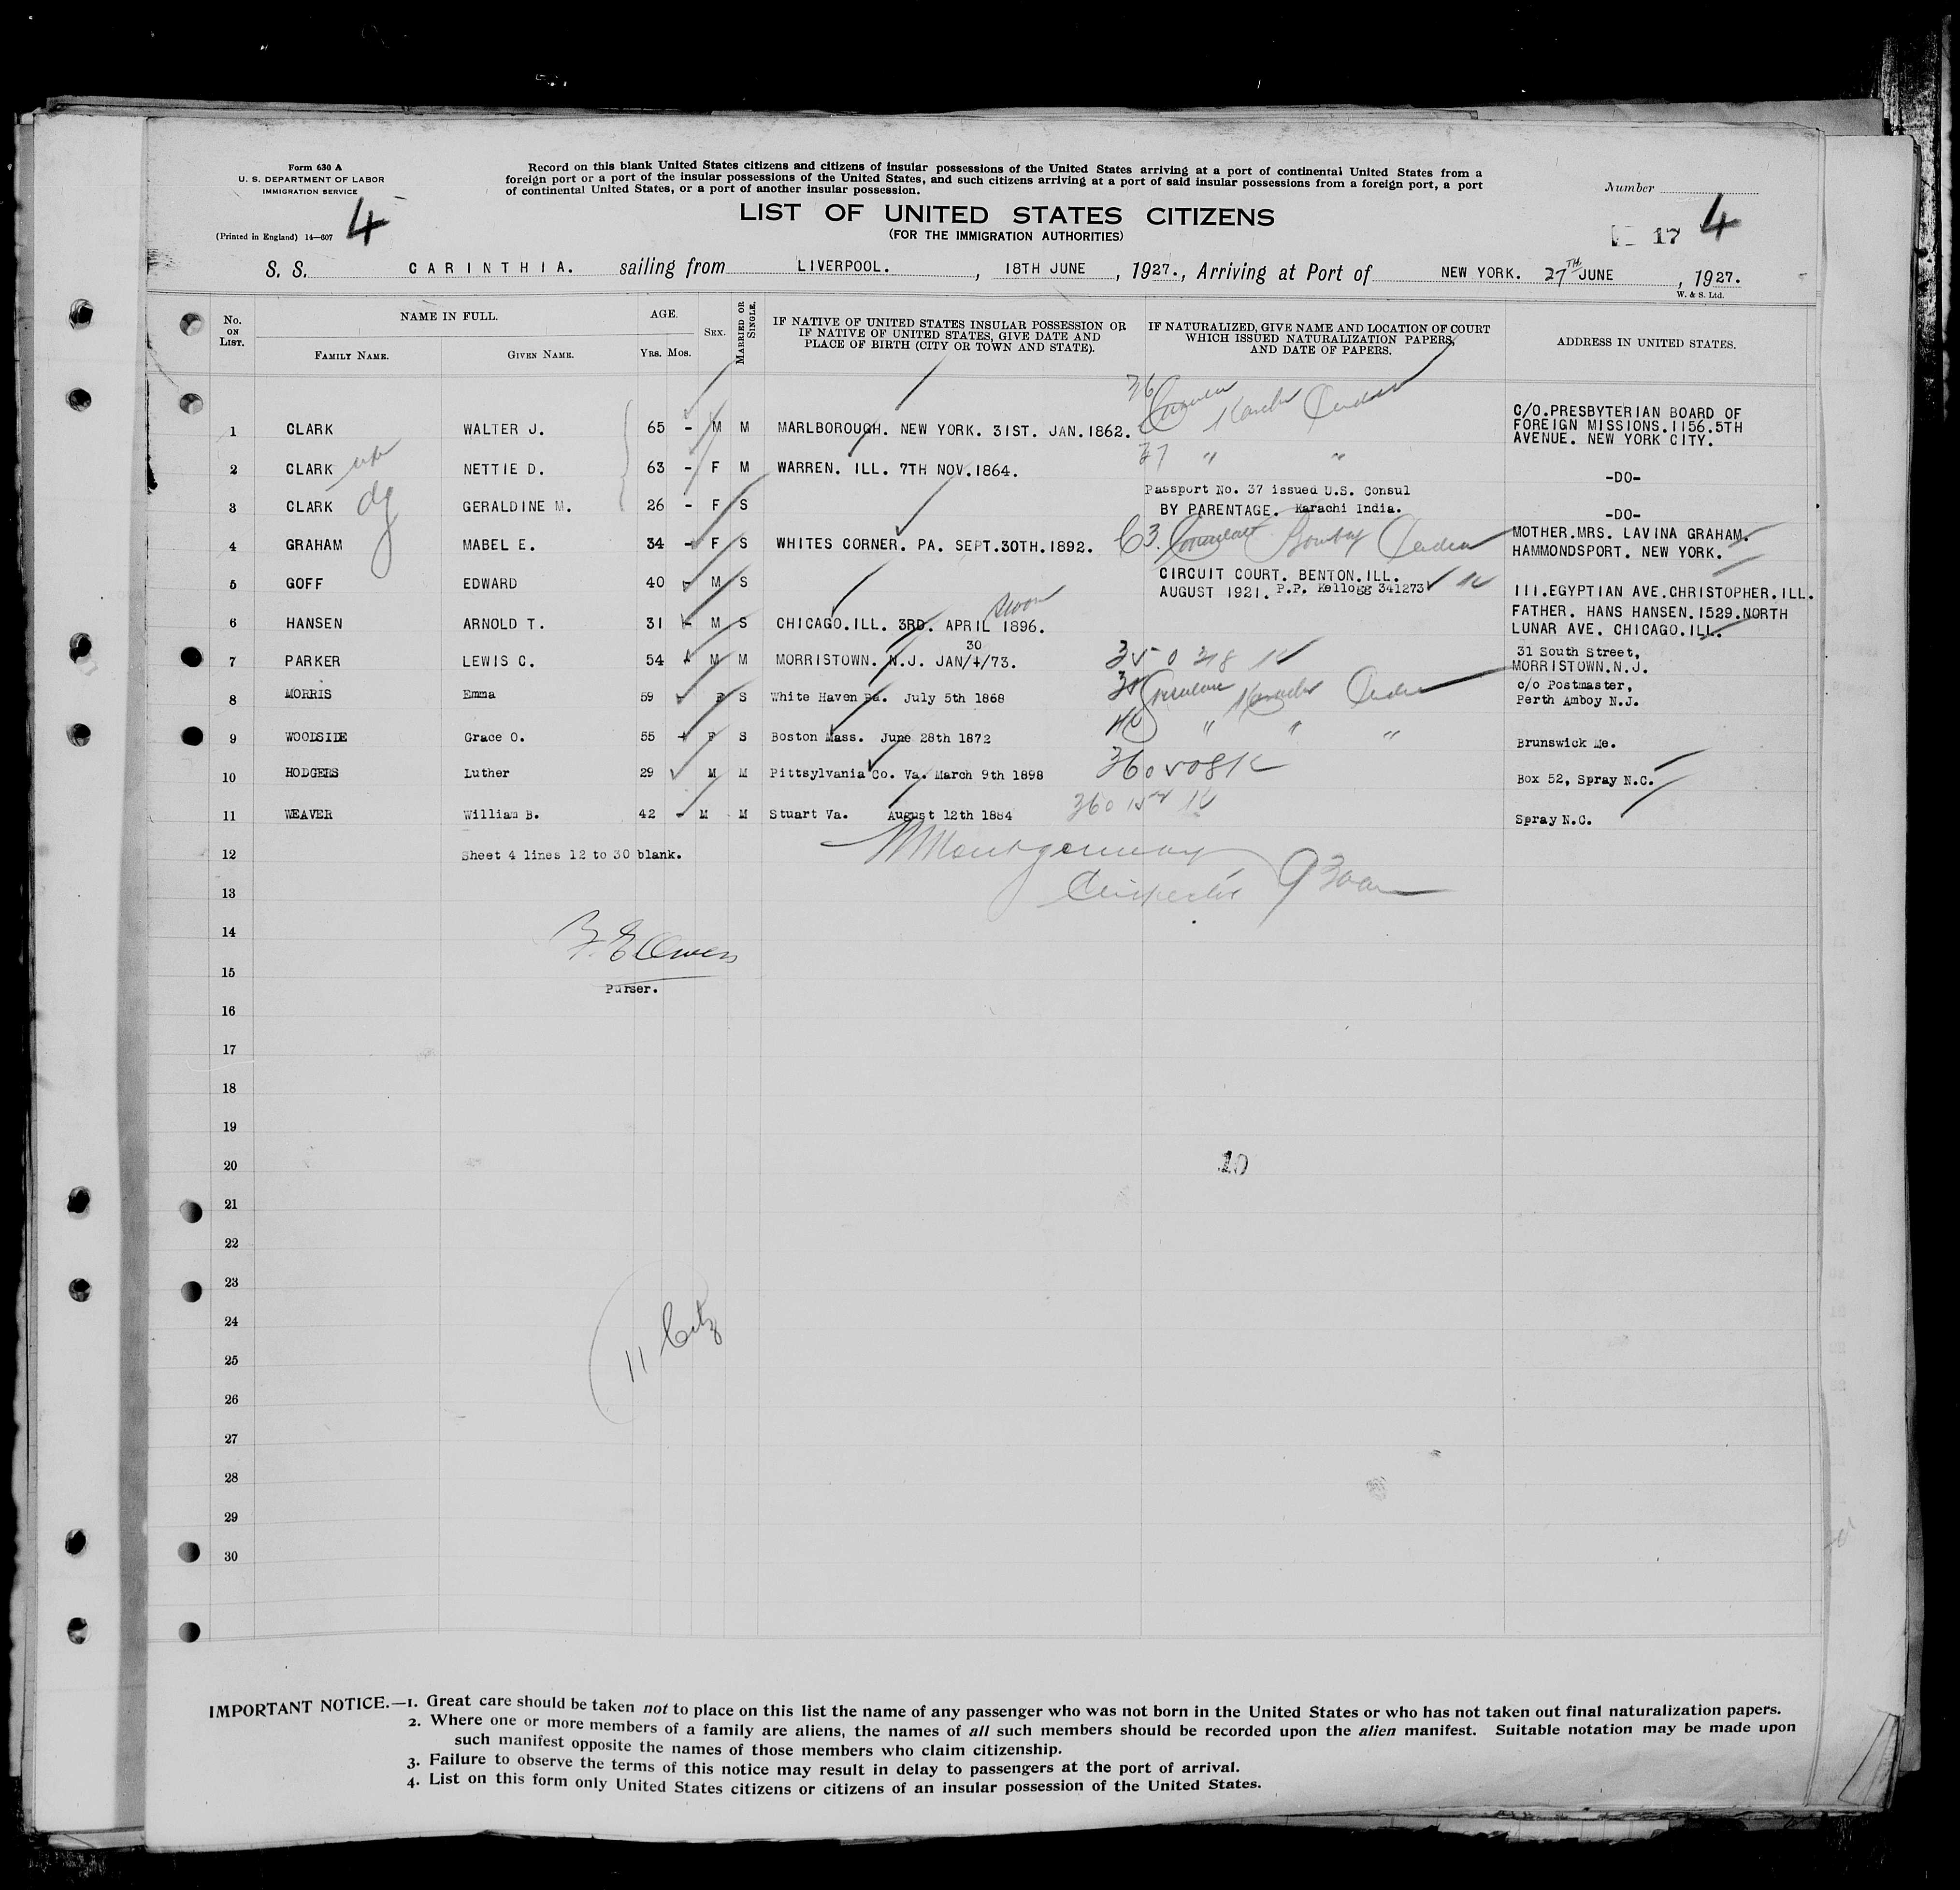 Form 630 A
U. S. DEPARTMENT OF LABOR
IMMIGRATION SERVICE
(Printed in England) 14—607
4
Record on this blank United States citizens and citizens of insular possessions of the United States arriving at a port of continental United States from a
foreign port or a port of the insular possessions of the United States, and such citizens arriving at a port of said insular possessions from a foreign port, a port
of continental United States, or a port of another insular possession.
Number
LIST OF UNITED STATES CITIZENS
(FOR THE IMMIGRATION AUTHORITIES)
17 4
S. S. CARINTHIA. sailing from LIVERPOOL. , 18TH JUNE , 1927., Arriving at Port of NEW YORK. 27TH JUNE , 1927.
W. & S. Ltd.
No. ON LIST. NAME IN FULL. FAMILY NAME. GIVEN NAME. AGE. Yrs. Mos. SEX. MARRIED OR SINGLE.
IF NATIVE OF UNITED STATES INSULAR POSSESSION OR
IF NATIVE OF UNITED STATES, GIVE DATE AND
PLACE OF BIRTH (CITY OR TOWN AND STATE).
IF NATURALIZED, GIVE NAME AND LOCATION OF COURT
WHICH ISSUED NATURALIZATION PAPERS,
AND DATE OF PAPERS.
ADDRESS IN UNITED STATES.
1 CLARK WALTER J. 65 - M M MARLBOROUGH. NEW YORK. 31ST. JAN.1862. 36 Karachi India
C/O.PRESBYTERIAN BOARD OF
FOREIGN MISSIONS.1156.5TH
AVENUE. NEW YORK CITY.
2 CLARK NETTIE D. 63 - F M WARREN. ILL. 7TH NOV.1864. 37 " " -DO-
3 CLARK dg GERALDINE M. 26 - F S Passport No. 37 issued U.S. Consul
BY PARENTAGE. Karachi India. -DO-
4 GRAHAM MABEL E. 34 - F S WHITES CORNER. PA. SEPT.30TH.1892. 63. Consulate Bombay India
MOTHER.MRS. LAVINA GRAHAM.
HAMMONDSPORT. NEW YORK.
5 GOFF EDWARD 40 - M S CIRCUIT COURT. BENTON.ILL.
AUGUST 1921. P.P. Kellogg 341273
111.EGYPTIAN AVE.CHRISTOPHER.ILL.
6 HANSEN ARNOLD T. 31 - M S CHICAGO.ILL. 3RD. APRIL 1896.
FATHER. HANS HANSEN.1529.NORTH
LUNAR AVE. CHICAGO.ILL.
30
7 PARKER LEWIS C. 54 M M MORRISTOWN. N.J. JAN/4/73.
31 South Street,
MORRISTOWN.N.J.
8 MORRIS Emma 59 F S White Haven Pa. July 5th 1868 Consulate Karachi India
c/o Postmaster,
Perth Amboy N.J.
9 WOODSIDE Grace O. 55 F S Boston Mass. June 28th 1872 " " " Brunswick Me.
10 HODGERS Luther 29 M M Pittsylvania Co. Va. March 9th 1898 Box 52, Spray N.C.
11 WEAVER William B. 42 - M M Stuart Va. August 12th 1884 Spray N.C.
12 Sheet 4 lines 12 to 30 blank. Montgomery
13 Inspector 930am
14 F. E. Owen
15 Purser.
16
17
18
19
20 10
21
22
23
24 11 Citz
25
26
27
28
29
30
IMPORTANT NOTICE.—1. Great care should be taken not to place on this list the name of any passenger who was not born in the United States or who has not taken out final naturalization papers.
2. Where one or more members of a family are aliens, the names of all such members should be recorded upon the alien manifest. Suitable notation may be made upon
such manifest opposite the names of those members who claim citizenship.
3. Failure to observe the terms of this notice may result in delay to passengers at the port of arrival.
4. List on this form only United States citizens or citizens of an insular possession of the United States.